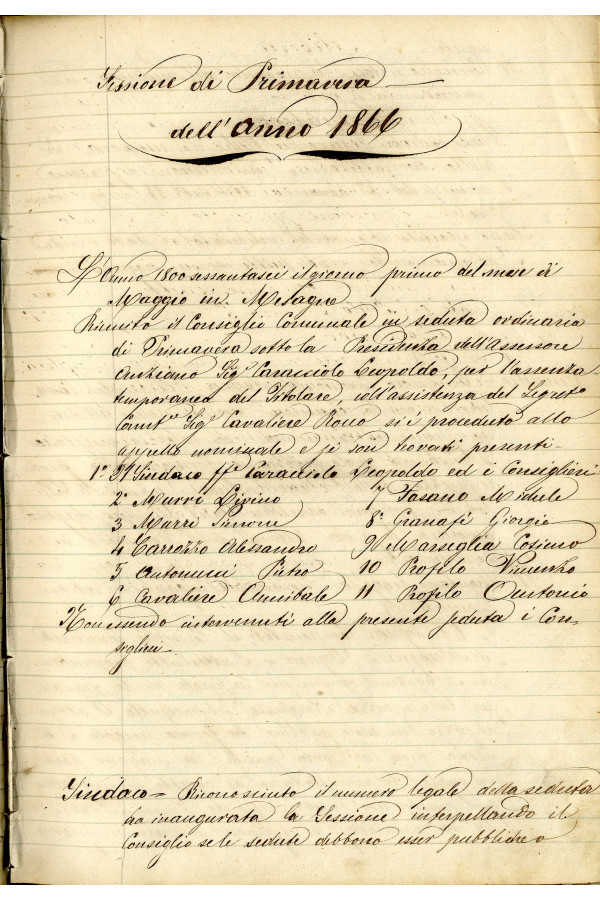 Sessione di Primavera
dell'anno 1866
L'Anno 1800sessantasei il giorno primo del mese di
Maggio in Mesagne
Riunito il Consiglio Comunale in seduta ordinaria
di Primavera sotto la Presidenza dell'Assessore
Anziano Sigr Caracciolo Leopoldo, per l'assenza
temporanea del Titolare, coll'assistenza del Segreto
Sigr Cavaliere si è proceduto allo
appello nominale e si son trovati presenti-
1º Il Sindaco ffe Caracciolo Leopoldo ed i Consiglieri
2º Murri Livino 7 Fasano Michele
3 Murri Simone 8º Granafi Giorgio
4 Carrozzo Alessandro 9 Marseglia Cosimo
5 Antonucci Pietro 10 Profilo Vincenzo
6 Cavaliere Annibale 11 Profilo Antonio
Non essendo intervenuti alla presente seduta i Con-
siglieri-
Sindaco= Riconosciuto il numero legale della seduta
ha inaugurata la Sessione interpellando il
Consiglio se le sedute debbono esser pubbliche o